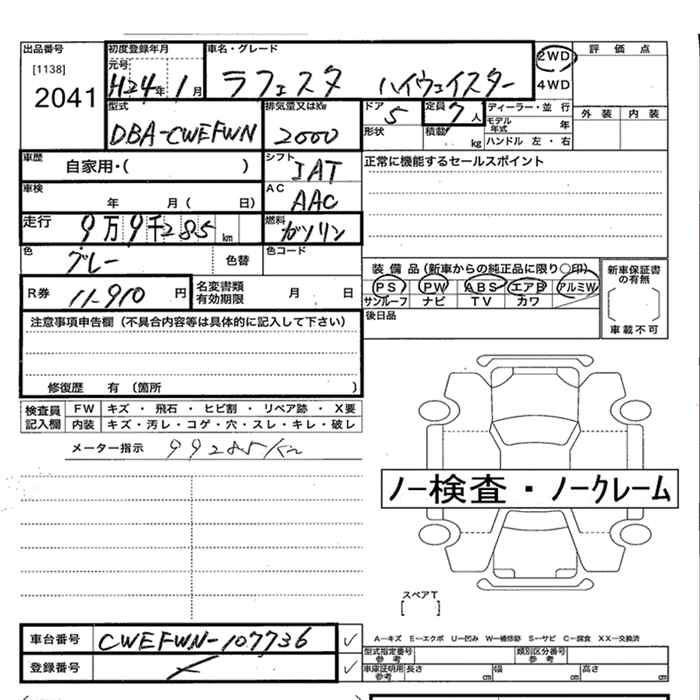 出品番号 初度登録年月 車名・グレード 2WD 評価点
[1138] 元号
2041 H24年 1月 ラフェスタ ハイウェイスター 4WD
型式 排気量又はkw ドア 定員 ディーラー・並行 外装 内装
DBA-CWEFWN 2000 5 7人 モデル年式 年
形状 積載 kg ハンドル 左・右
車歴 自家用・( ) シフト IAT 正常に機能するセールスポイント
車検 年 月( 日) AC AAC
走行 9万9千285km 燃料 ガソリン
色 グレー 色替 色コード
装備品(新車からの純正品に限り○印) 新車保証書の有無
PS PW ABS エアB アルミW
サンルーフ ナビ TV カワ
車載不可
R券 11-910円 名変書類有効期限 月 日 後日品
注意事項申告欄(不具合内容等は具体的に記入して下さい)
修復歴 有(箇所 )
検査員記入欄 FW キズ・飛石・ヒビ割・リペア跡・X要
内装 キズ・汚レ・コゲ・穴・スレ・キレ・破レ
メーター指示 99285km
ノー検査・ノークレーム
スペアT
[ ]
車台番号 CWEFWN-107736
登録番号
A-キズ E-エクボ U-凹み W-補修跡 S-サビ C-腐食 XX-交換済
型式指定番号 参考 類別区分番号 参考
車庫証明用 参考 長さ cm 幅 cm 高さ cm